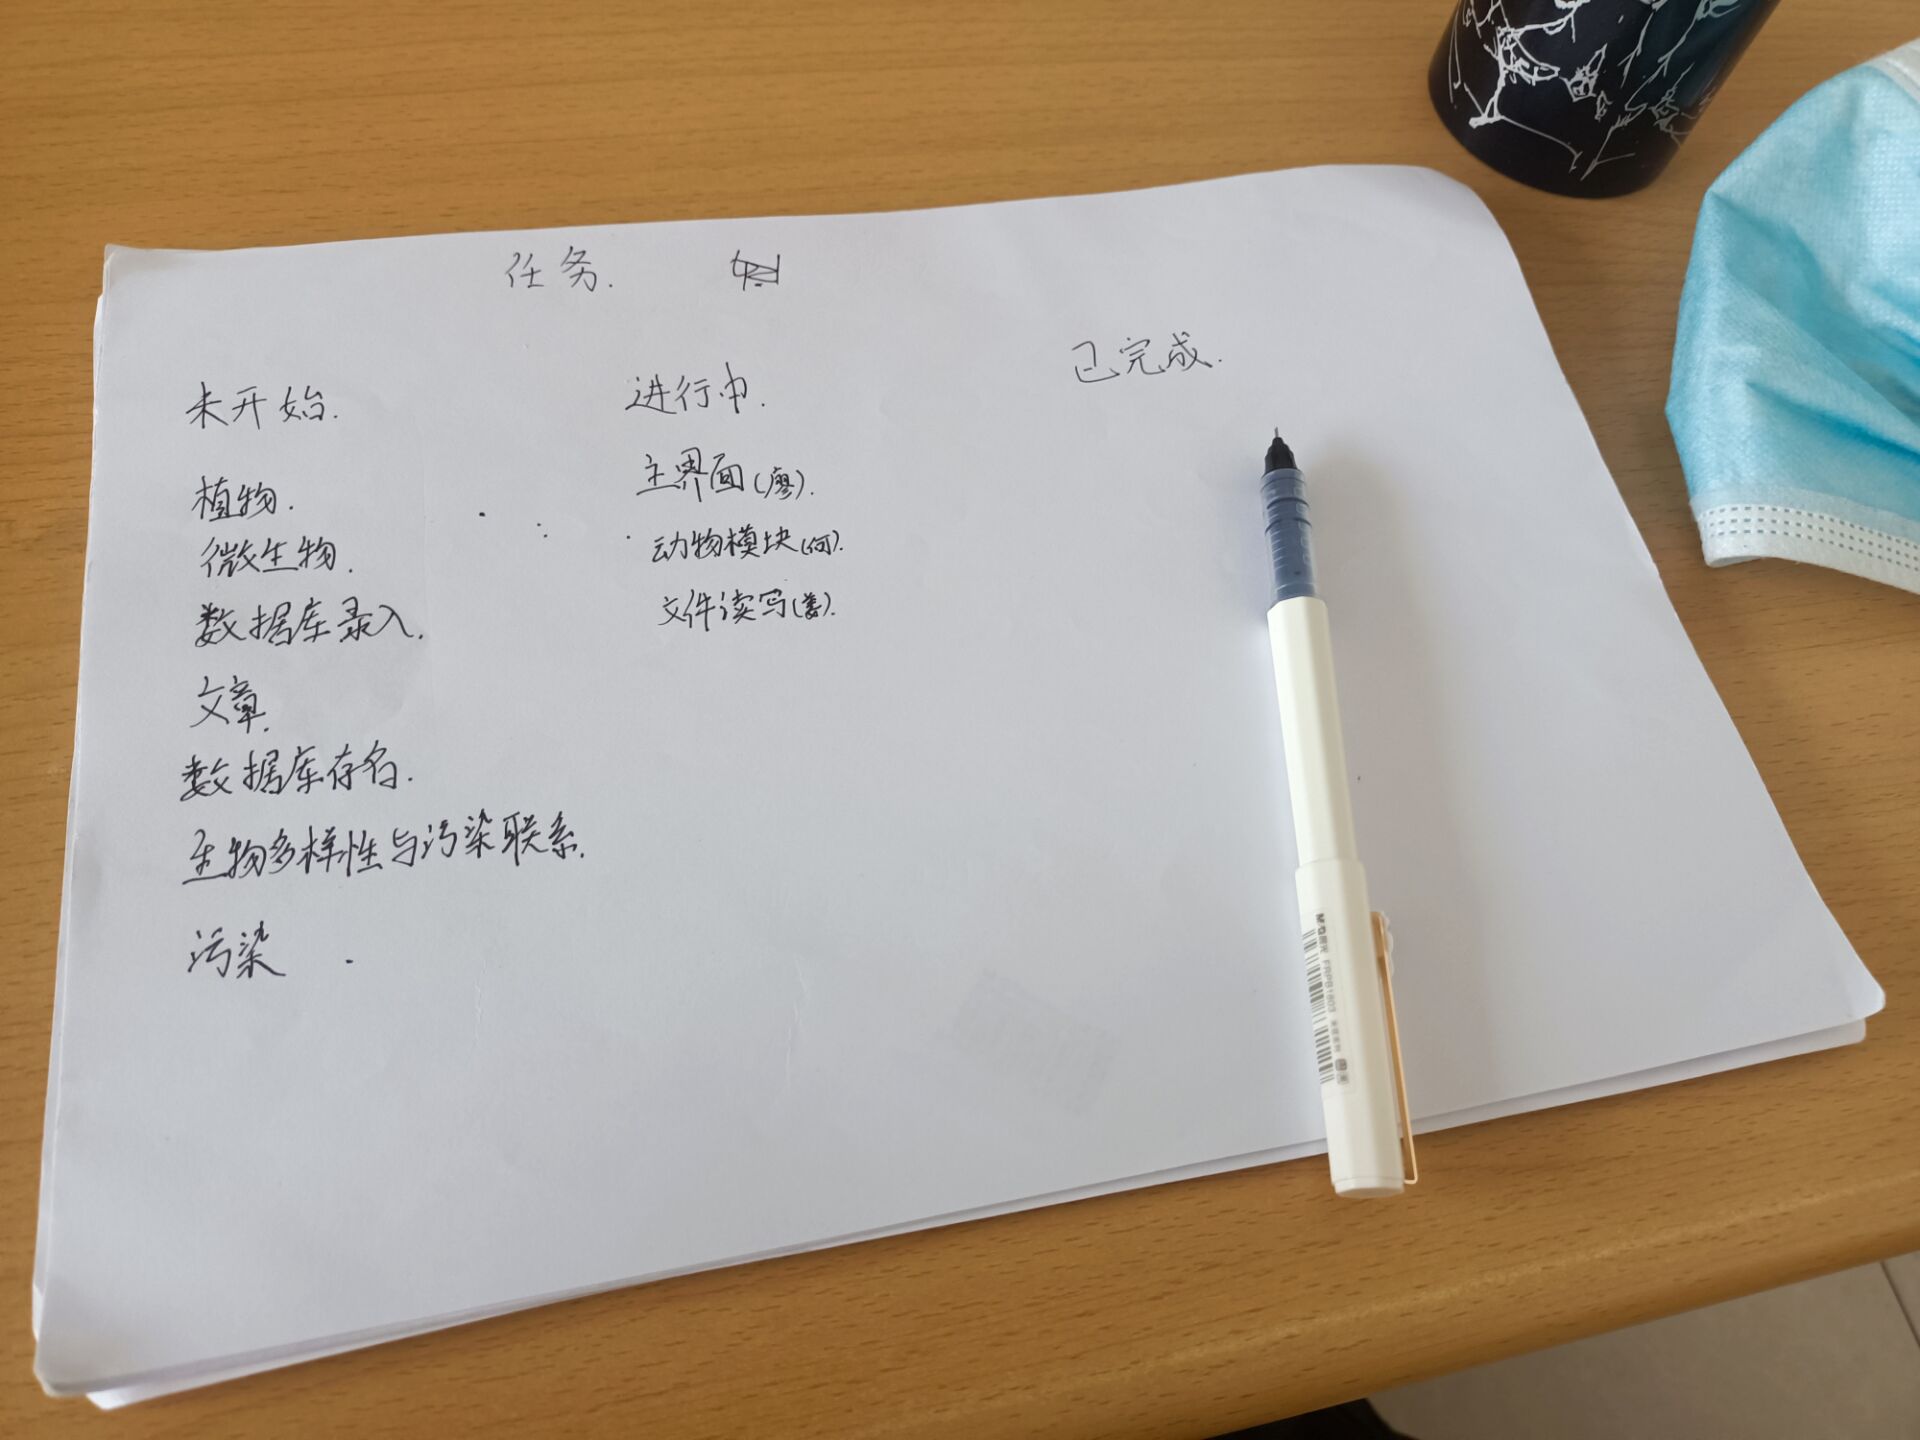 任务.
未开始.
植物.
微生物.
数据库录入.
文章.
数据库存名.
生物多样性与污染联系.
污染.
进行中.
主界面(廖).
动物模块(何).
文件读写(姜).
已完成.
M&G晨光 FRPB1803